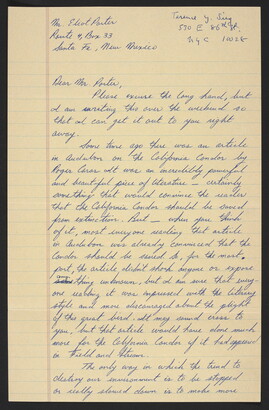 Mr. Eliot Porter
Route 4, Box 33
Santa Fe, New Mexico
530 E. 86th St.
NYC 10028
Dear Mr. Porter,
Please excuse the long hand, but
I am writing this over the weekend so
that I can get it out to you right
away.
Some time ago there was an article
in Audubon on the California Condor by
Roger Caras. It was an incredibly powerful
and beautiful piece of literature — certainly
something that would convince the reader
that the California Condor should be saved
from extinction. But — when you think
of it, most everyone reading that article
in Audubon was already convinced that the
Condor should be saved &, for the most
part, the article didn't shock anyone or expose
thing unknown, but I am sure that every-
one reading it was impressed with the literary
style and more discouraged about the plight
of this great bird. It may sound crass to
you, but that article would have done much
more for the California Condor if it had appeared
in Field and Stream.
The only way in which the trend to
destroy our environment is to be stopped
or really slowed down is to make more